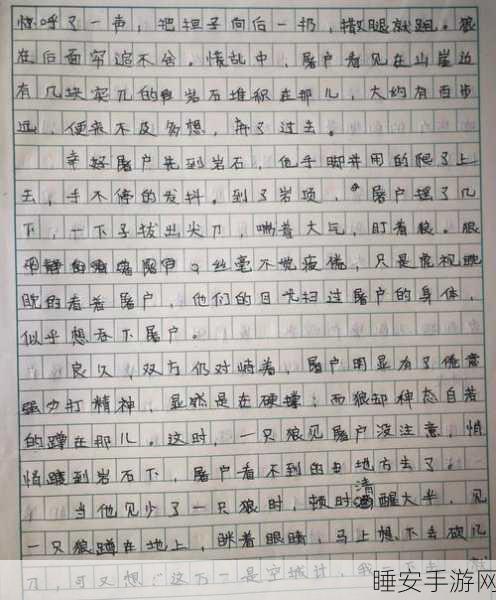 惊呼了一声，把担子向后一扔，撒腿就跑。狼
在后面穷追不舍。慌乱中，屠户看见在山崖边
有几块突兀的岩石堆积在那儿，大约有百步
远，便来不及多想，奔了过去。
幸好屠户先到岩石，他手脚并用的爬了上
去，手不停的发抖。到了岩顶，屠户摇了几
下，一下子拔出尖刀，喘着大气，盯着狼。狼
丝毫不觉疲倦，只是虎视眈
眈的看着屠户，他们的目光扫过屠户的身体，
似乎想吞下屠户。
良久，双方仍对峙着，屠户明显有了倦意
强力打精神，显然是在硬撑；而狼却神态自若
的蹲在那儿。这时，一只狼见屠户没注意，悄
悄踱到岩石下，屠户看不到的地方去了
当他见少了一只狼时，顿时清醒大半，见
一只狼蹲在地上，眯着眼睛，马上想下去砍几
刀，可又想：“这万一是空城计，我
睡安手游网